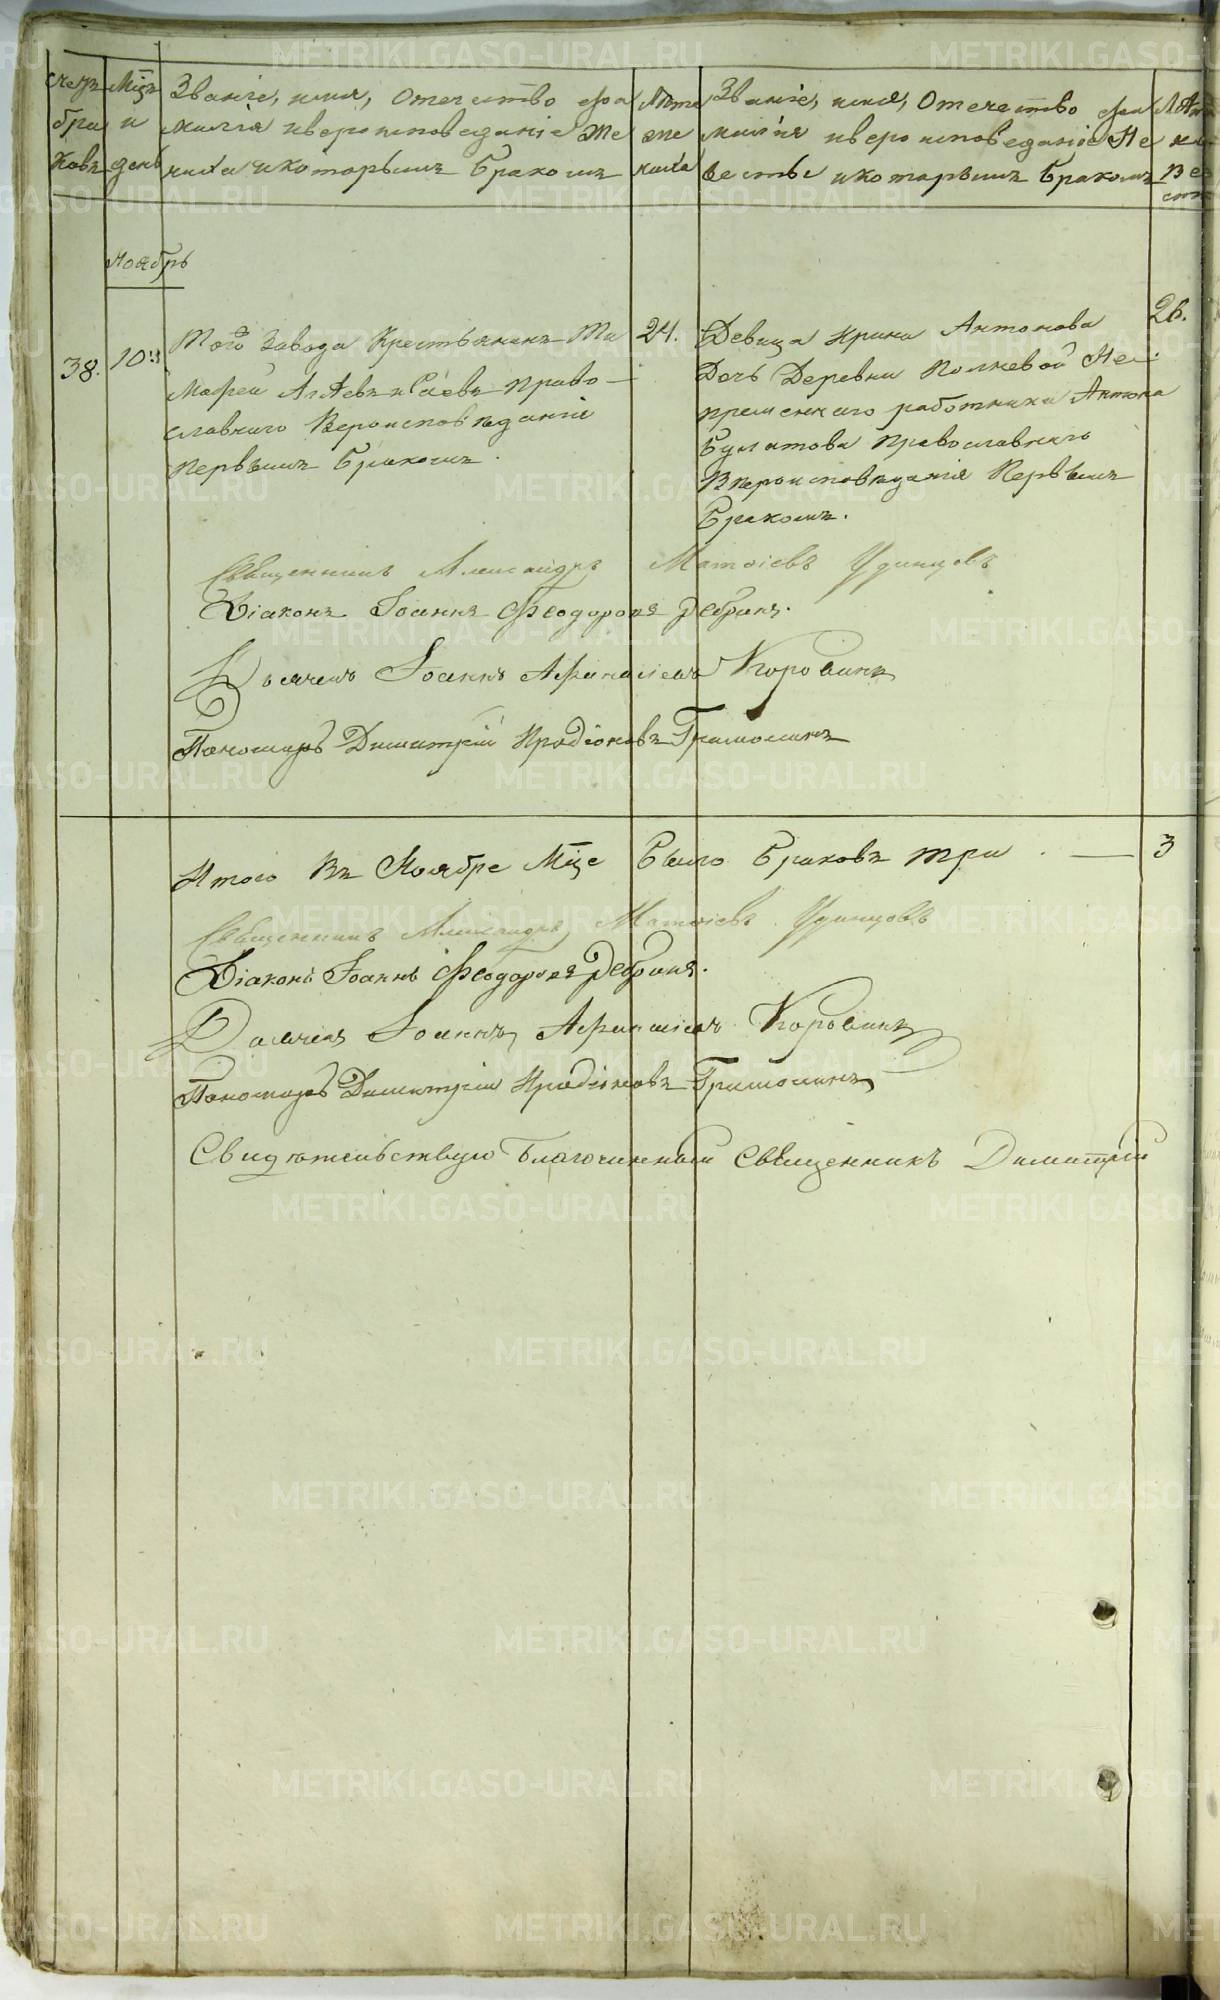 счетъ браковъ
Мцъ и день
Званіе, имя, Отечество фамилія и вероисповеданіе Жениха и которымъ Бракомъ
Лѣта жениха
Званіе, имя, Отечество фамилія и вероисповеданіе Невесты и которымъ Бракомъ
Лѣта невесты
Ноябрь
38.
10:
Того Завода Крестьянинъ Ти
мофей право—
славнаго Вероисповѣданія
первымъ бракомъ.
24.
Девица Ирина Антонова
Дочь Деревни Полкевой Не—
пременнаго работника Антона
Булатова православнаго
Вѣроисповѣданія Первымъ
бракомъ.
26.
Священникъ Александръ Матѳіевъ Удинцовъ
Діаконъ Іоаннъ Феодоровъ Ребринъ.
Дьячекъ Іоаннъ Афанасіевъ Коровинъ
Пономарь Димитрій Иродіоновъ
Итого Въ Ноябре Мцѣ Было браковъ три . — 3
Священникъ Александръ Матѳіевъ Удинцовъ
Діаконъ Іоаннъ Феодоровъ Ребринъ.
Дьячекъ Іоаннъ Афанасіевъ Коровинъ
Пономарь Димитрій Иродіоновъ
Свидѣтельствую Благочинный Священникъ Димитрій
METRIKI.GASO-URAL.RU